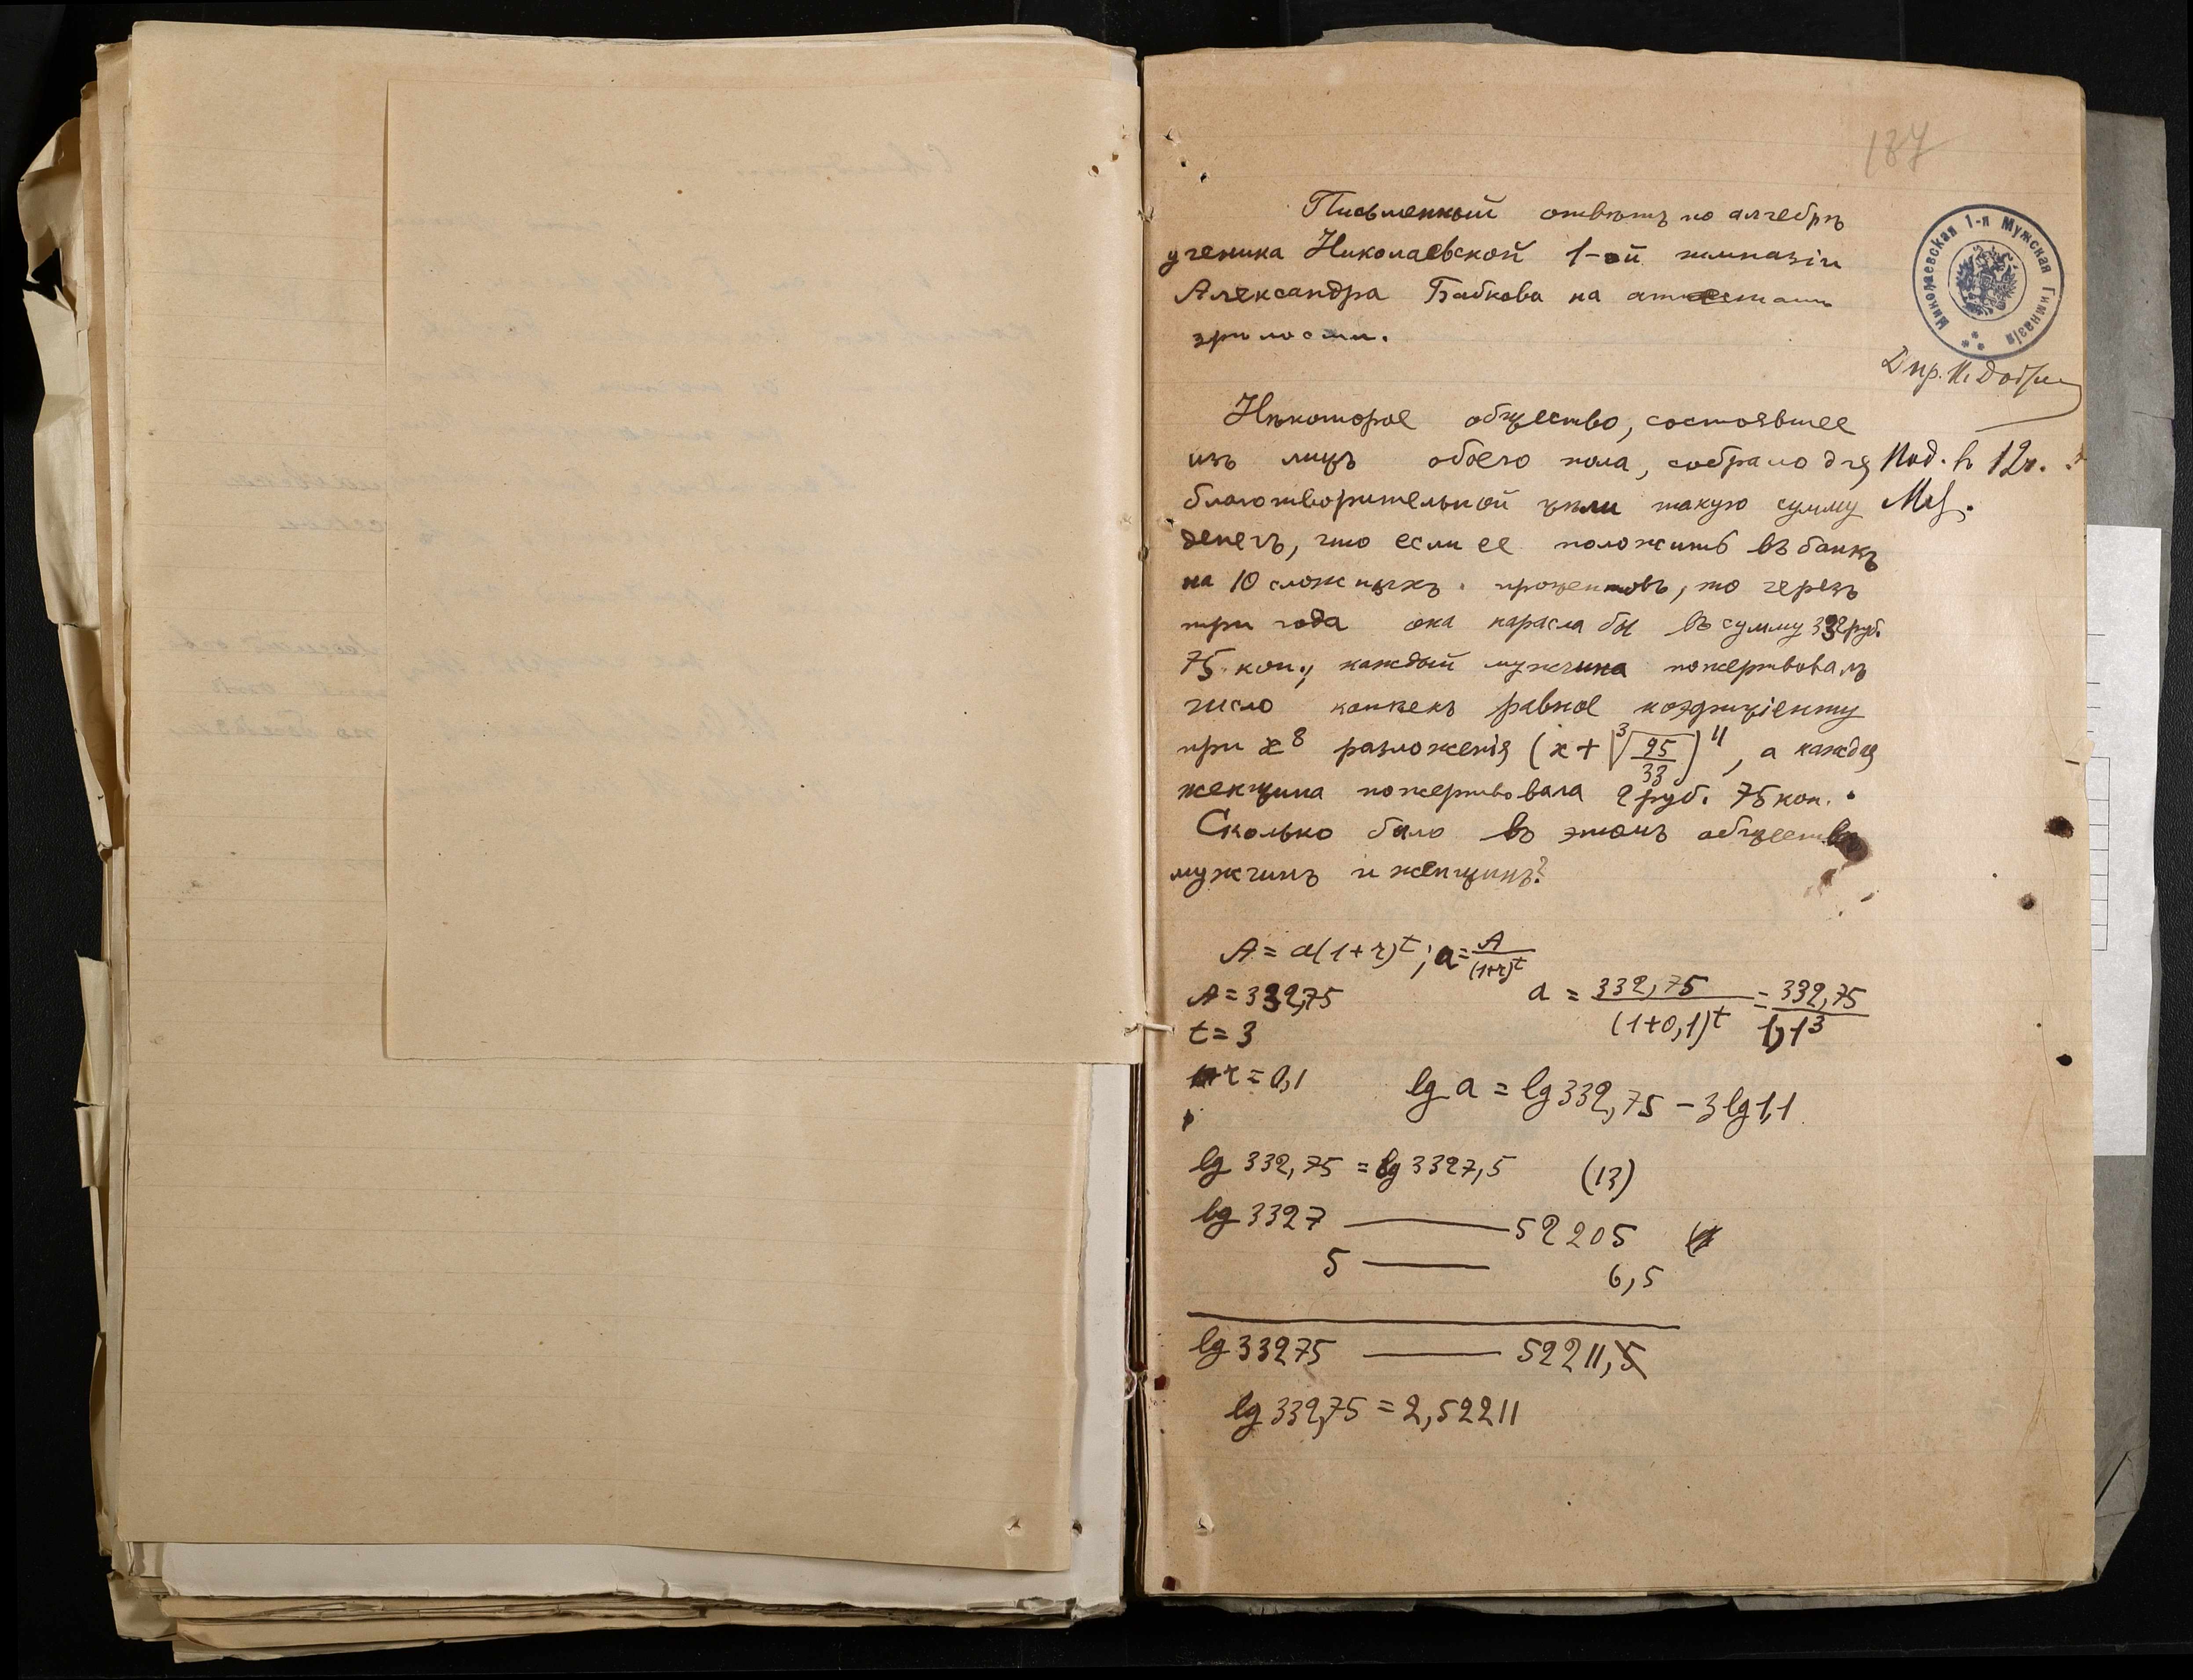 187
Письменный отвѣтъ по алгебрѣ
ученика Николаевской 1-ой гимназіи
Александра Бабкова на аттестатъ
зрѣлости.
Николаевская 1-я Мужская Гимназія
Дир. И.
Нѣкоторое общество, состоявшее
изъ лицъ обоего пола, собрало для
Под. в 12ч.
благотворительной цѣли такую сумму
денегъ, что если ее положить въ банкъ
на 10 сложныхъ процентовъ, то черезъ
три года она наросла бы въ сумму 332 руб.
75 коп.; каждый мужчина пожертвовалъ
число копѣекъ равное коэфиціенту
при x⁸ разложенія (x + ∛(95/33))¹¹, а каждая
женщина пожертвовала 2 руб. 75 коп.
Сколько было въ этомъ обществѣ
мужчинъ и женщинъ?
A = a(1+r)^t; a = A/(1+r)^t
A = 332,75
a = 332,75/(1+0,1)^t = 332,75/1,1³
t = 3
r = 0,1
lg a = lg 332,75 – 3 lg 1,1
lg 332,75 = lg 3327,5 (13)
lg 3327 — 52205
5 — 6,5
lg 33275 — 52211,5
lg 332,75 = 2,52211